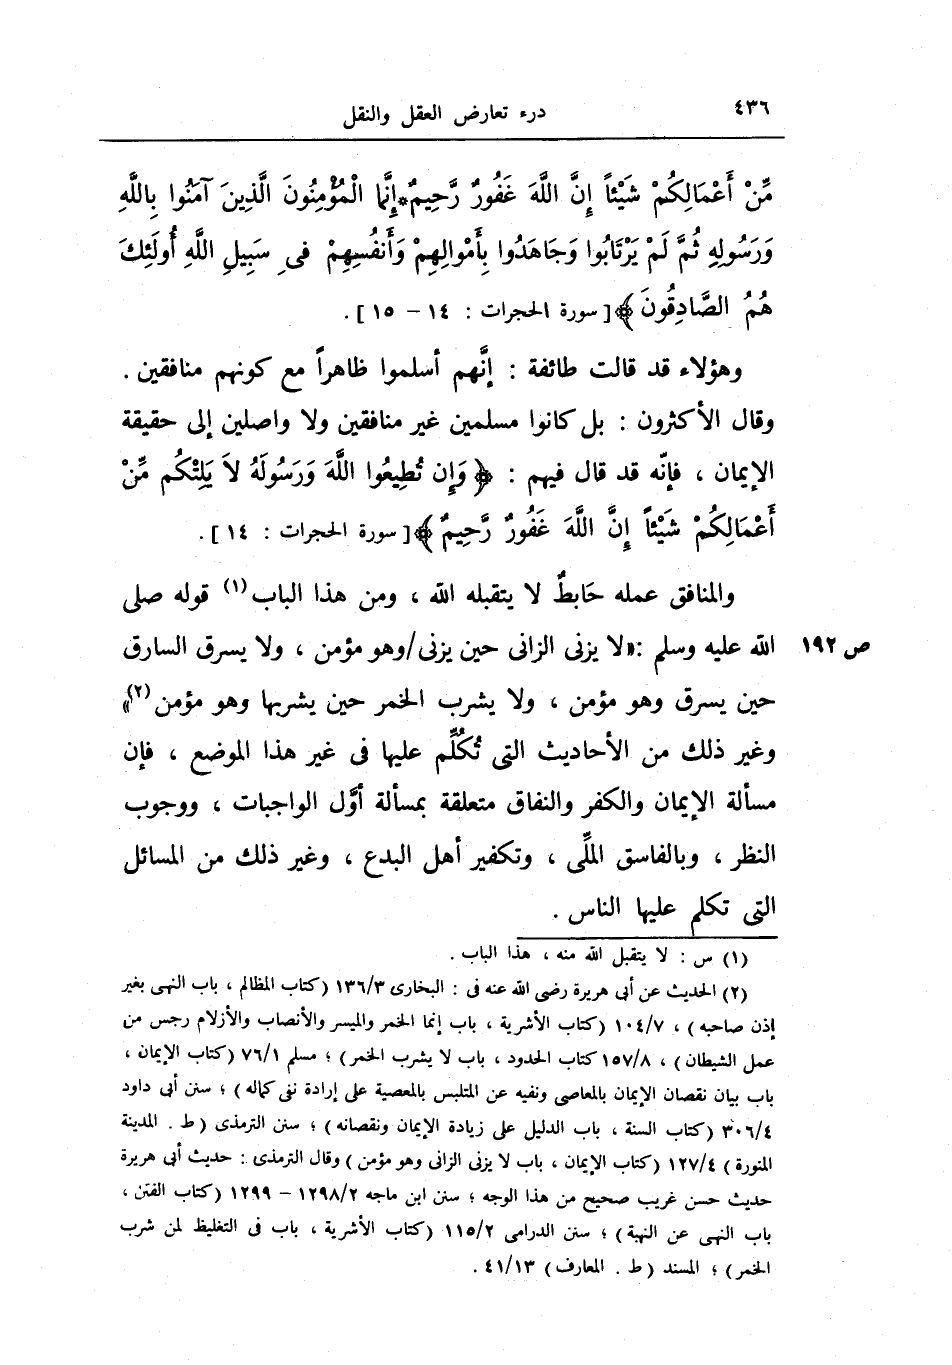 ٤٣٦ درء تعارض العقل والنقل
مِّنْ أَعْمَالِكُمْ شَيْئاً إِنَّ اللَّهَ غَفُورٌ رَّحِيمٌ*إِنَّمَا الْمُؤْمِنُونَ الَّذِينَ آمَنُوا بِاللَّهِ
وَرَسُولِهِ ثُمَّ لَمْ يَرْتَابُوا وَجَاهَدُوا بِأَمْوالِهِمْ وَأَنفُسِهِمْ فى سَبِيلِ اللَّهِ أُولَئِكَ
هُمُ الصَّادِقُونَ ﴾ [ سورة الحجرات : ١٤ – ١٥ ] .
وهؤلاء قد قالت طائفة : إنَّهم أسلموا ظاهراً مع كونهم منافقين .
وقال الأكثرون : بل كانوا مسلمين غير منافقين ولا واصلين إلى حقيقة
الإيمان ، فإنّه قد قال فيهم : ﴿ وَإِن تُطِيعُوا اللَّهَ وَرَسُولَهُ لاَ يَلِتْكُم مِّنْ
أَعْمَالِكُمْ شَيْئاً إِنَّ اللَّهَ غَفُورٌ رَّحِيمٌ ﴾ [ سورة الحجرات : ١٤ ] .
والمنافق عمله حَابطٌ لا يتقبله الله ، ومن هذا الباب (١) قوله صلى
الله عليه وسلم : «لا يزنى الزانى حين يزنى/وهو مؤمن ، ولا يسرق السارق
ص ١٩٢
حين يسرق وهو مؤمن ، ولا يشرب الخمر حين يشربها وهو مؤمن (٢)»
وغير ذلك من الأحاديث التى تُكُلِّم عليها فى غير هذا الموضع ، فإن
مسألة الإيمان والكفر والنفاق متعلقة بمسألة أوَّل الواجبات ، ووجوب
النظر ، وبالفاسق الملِّى ، وتكفير أهل البدع ، وغير ذلك من المسائل
التى تكلم عليها الناس .
(١) س : لا يتقبل الله منه ، هذا الباب .
(٢) الحديث عن أبى هريرة رضى الله عنه فى : البخارى ١٣٦/٣ (كتاب المظالم ، باب النهى بغير
إذن صاحبه) ، ١٠٤/٧ (كتاب الأشرية ، باب إنما الخمر والميسر والأنصاب والأزلام رجس من
عمل الشيطان) ، ١٥٧/٨ كتاب الحدود ، باب لا يشرب الخمر) ؛ مسلم ٧٦/١ (كتاب الإيمان ،
باب بيان نقصان الإيمان بالمعاصى ونفيه عن المتلبس بالمعصية على إرادة نفى كماله) ؛ سنن أبى داود
٣٠٦/٤ (كتاب السنة ، باب الدليل على زيادة الإيمان ونقصانه) ؛ سنن الترمذى (ط . المدينة
المنورة) ١٢٧/٤ (كتاب الإيمان ، باب لا يزنى الزانى وهو مؤمن) وقال الترمذى : حديث أبى هريرة
حديث حسن غريب صحيح من هذا الوجه ؛ سنن ابن ماجه ١٢٩٨/٢ – ١٢٩٩ (كتاب الفتن ،
باب النهى عن النهبة) ؛ سنن الدرامى ١١٥/٢ (كتاب الأشرية ، باب فى التغليظ لمن شرب
الخمر) ؛ المسند (ط . المعارف) ٤١/١٣ .